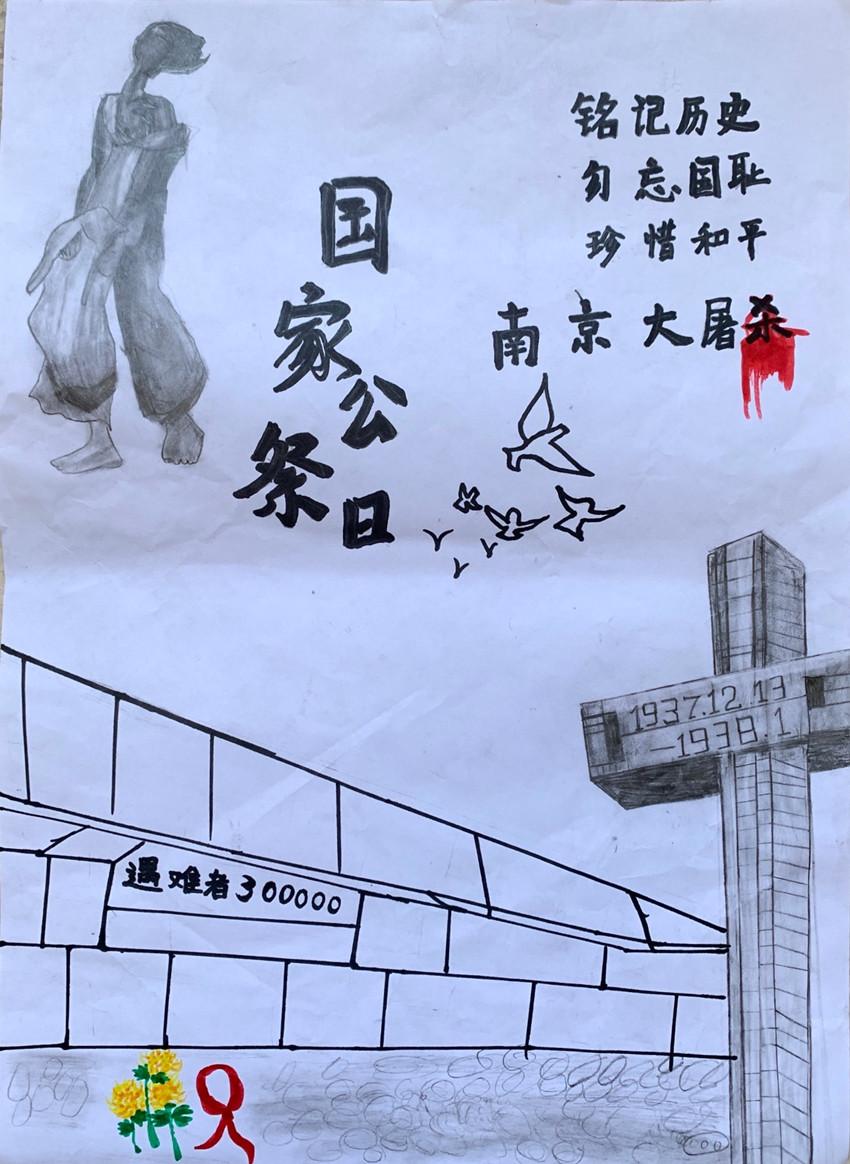 铭记历史
勿忘国耻
珍惜和平
南京大屠杀
国家公祭日
1937.12.13
-1938.1
遇难者300000